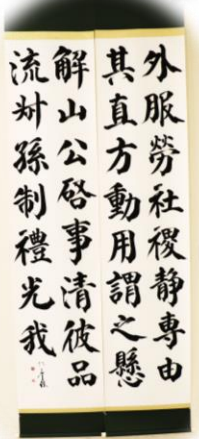 外服勞社稷静專由
其直方動用謂之懸
解山公啓事清彼品
流叔孫制禮光我